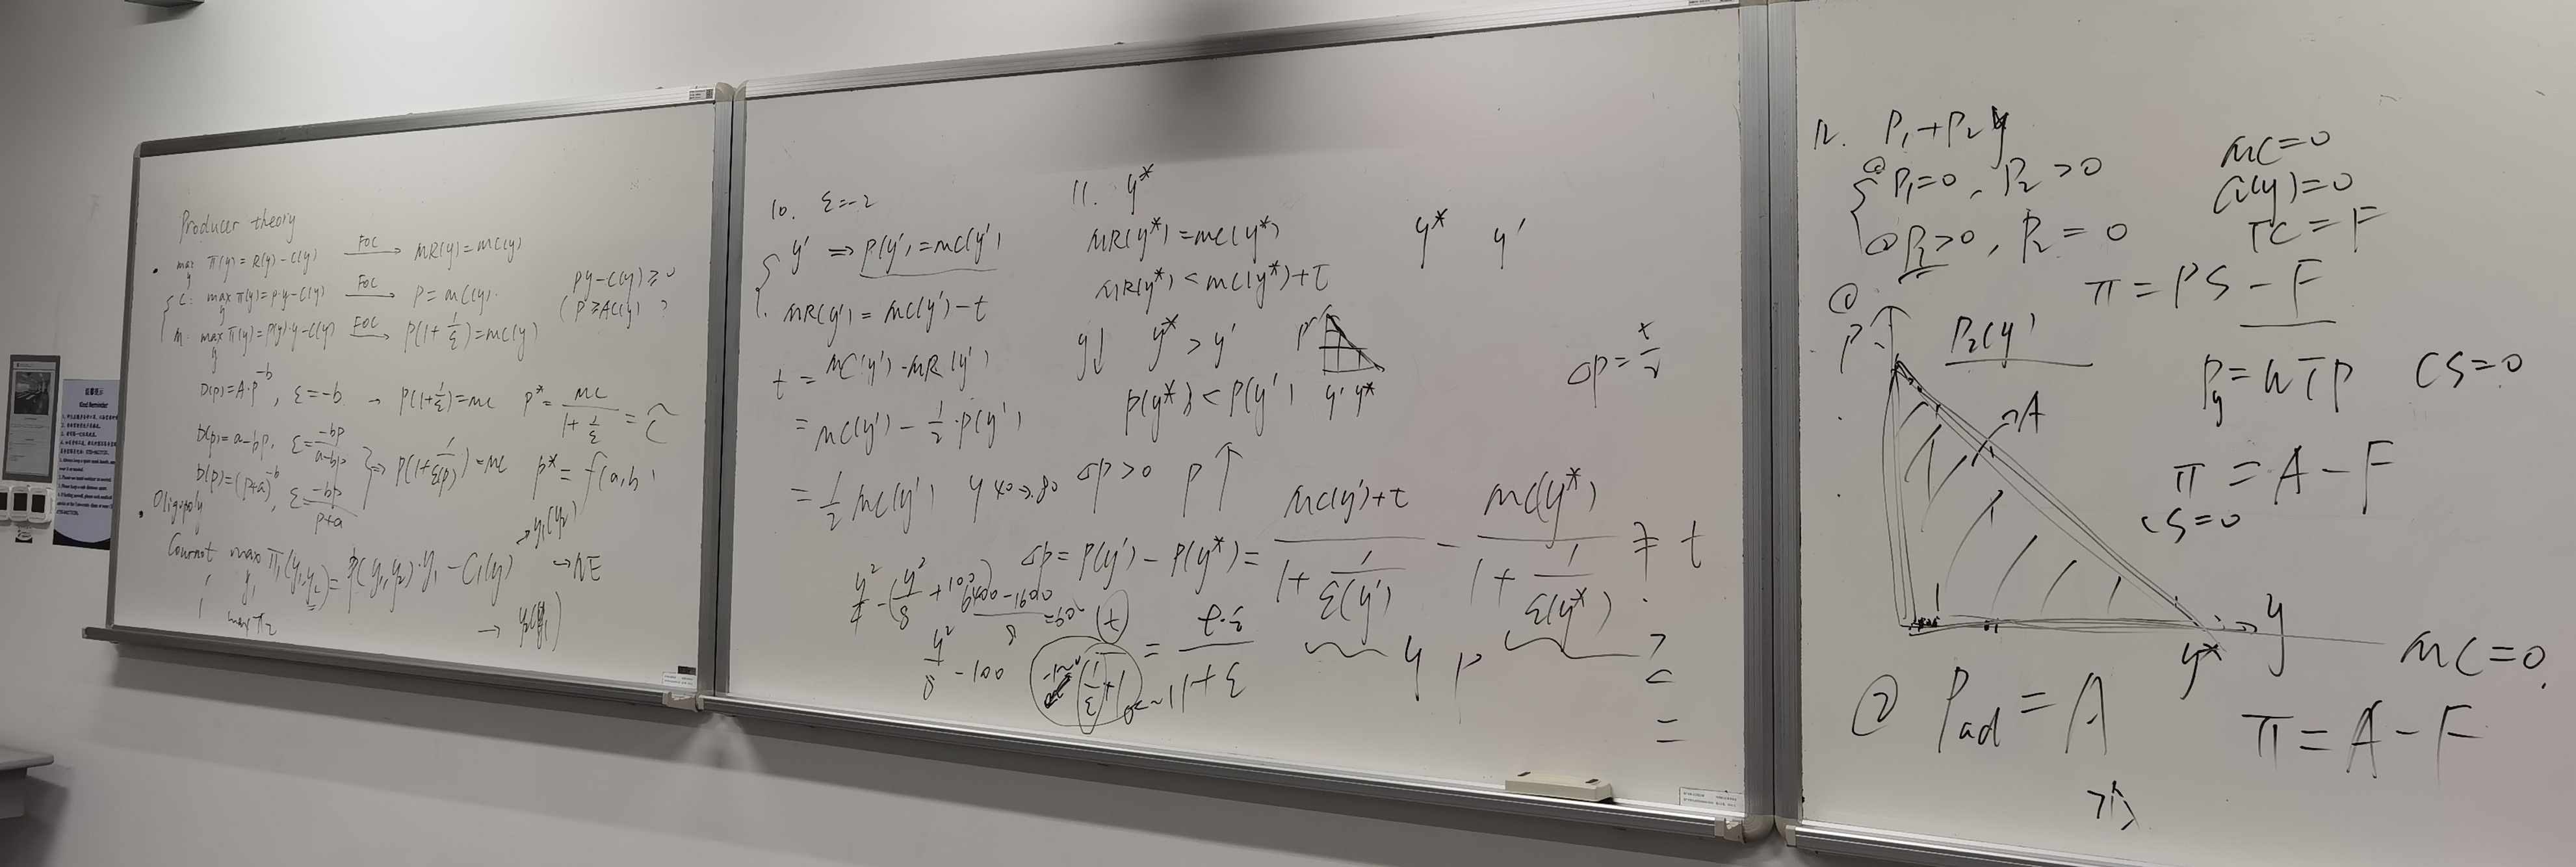 Producer theory
max π(y) = R(y) - C(y) FOC → MR(y) = MC(y)
y
C: max π(y) = p·y - C(y) FOC → P = MC(y). py - C(y) ≥ 0
y (P ≥ AC(y))
M: max π(y) = p(y)·y - C(y) FOC → p(1 + 1/ε) = MC(y)
y
D(p) = A·p^-b, ε = -b → p(1 + 1/ε) = MC p* = MC/(1 + 1/ε) =
D(p) = a - bp, ε = -bp/(a-bp)
⇒ p(1 + 1/ε(p)) = MC p* = f(a,b)
D(p) = (p+a)^-b, ε = -bp/(p+a)
Oligopoly
Cournot max π₁(y₁,y₂) = p(y₁,y₂)·y₁ - C₁(y) → y₁(y₂)
y₁ → NE
max π₂ → y₂(y₁)
10. ε = -2
y' ⇒ p(y') = MC(y')
MR(y') = MC(y') - t
t = MC(y') - MR(y')
= MC(y') - 1/2·p(y')
= 1/2 MC(y') y 40→80
y²/4 - (y²/8 + 100)
6400-1600
8
y²/8 - 100
11. y*
MR(y*) = MC(y*)
MR(y*) < MC(y*) + t
y↓ y* > y'
p(y*) < p(y')
p
y' y*
Δp > 0 p↑
Δp = p(y') - p(y*) = (MC(y') + t)/(1 + 1/ε(y')) - MC(y*)/(1 + 1/ε(y*)) t
t/(1/ε + 1) = t·ε/(1+ε)
y p
>
<
=
y* y'
Δp = t/2
12. P₁ + P₂y
① P₁ = 0, P₂ > 0
② P₁ > 0, P₂ = 0
MC = 0
C(y) = 0
TC = F
π = PS - F
① P
P₂(y)
A
y
y*
MC = 0
Py = WTP CS = 0
π = A - F
CS = 0
② Pad = A π = A - F